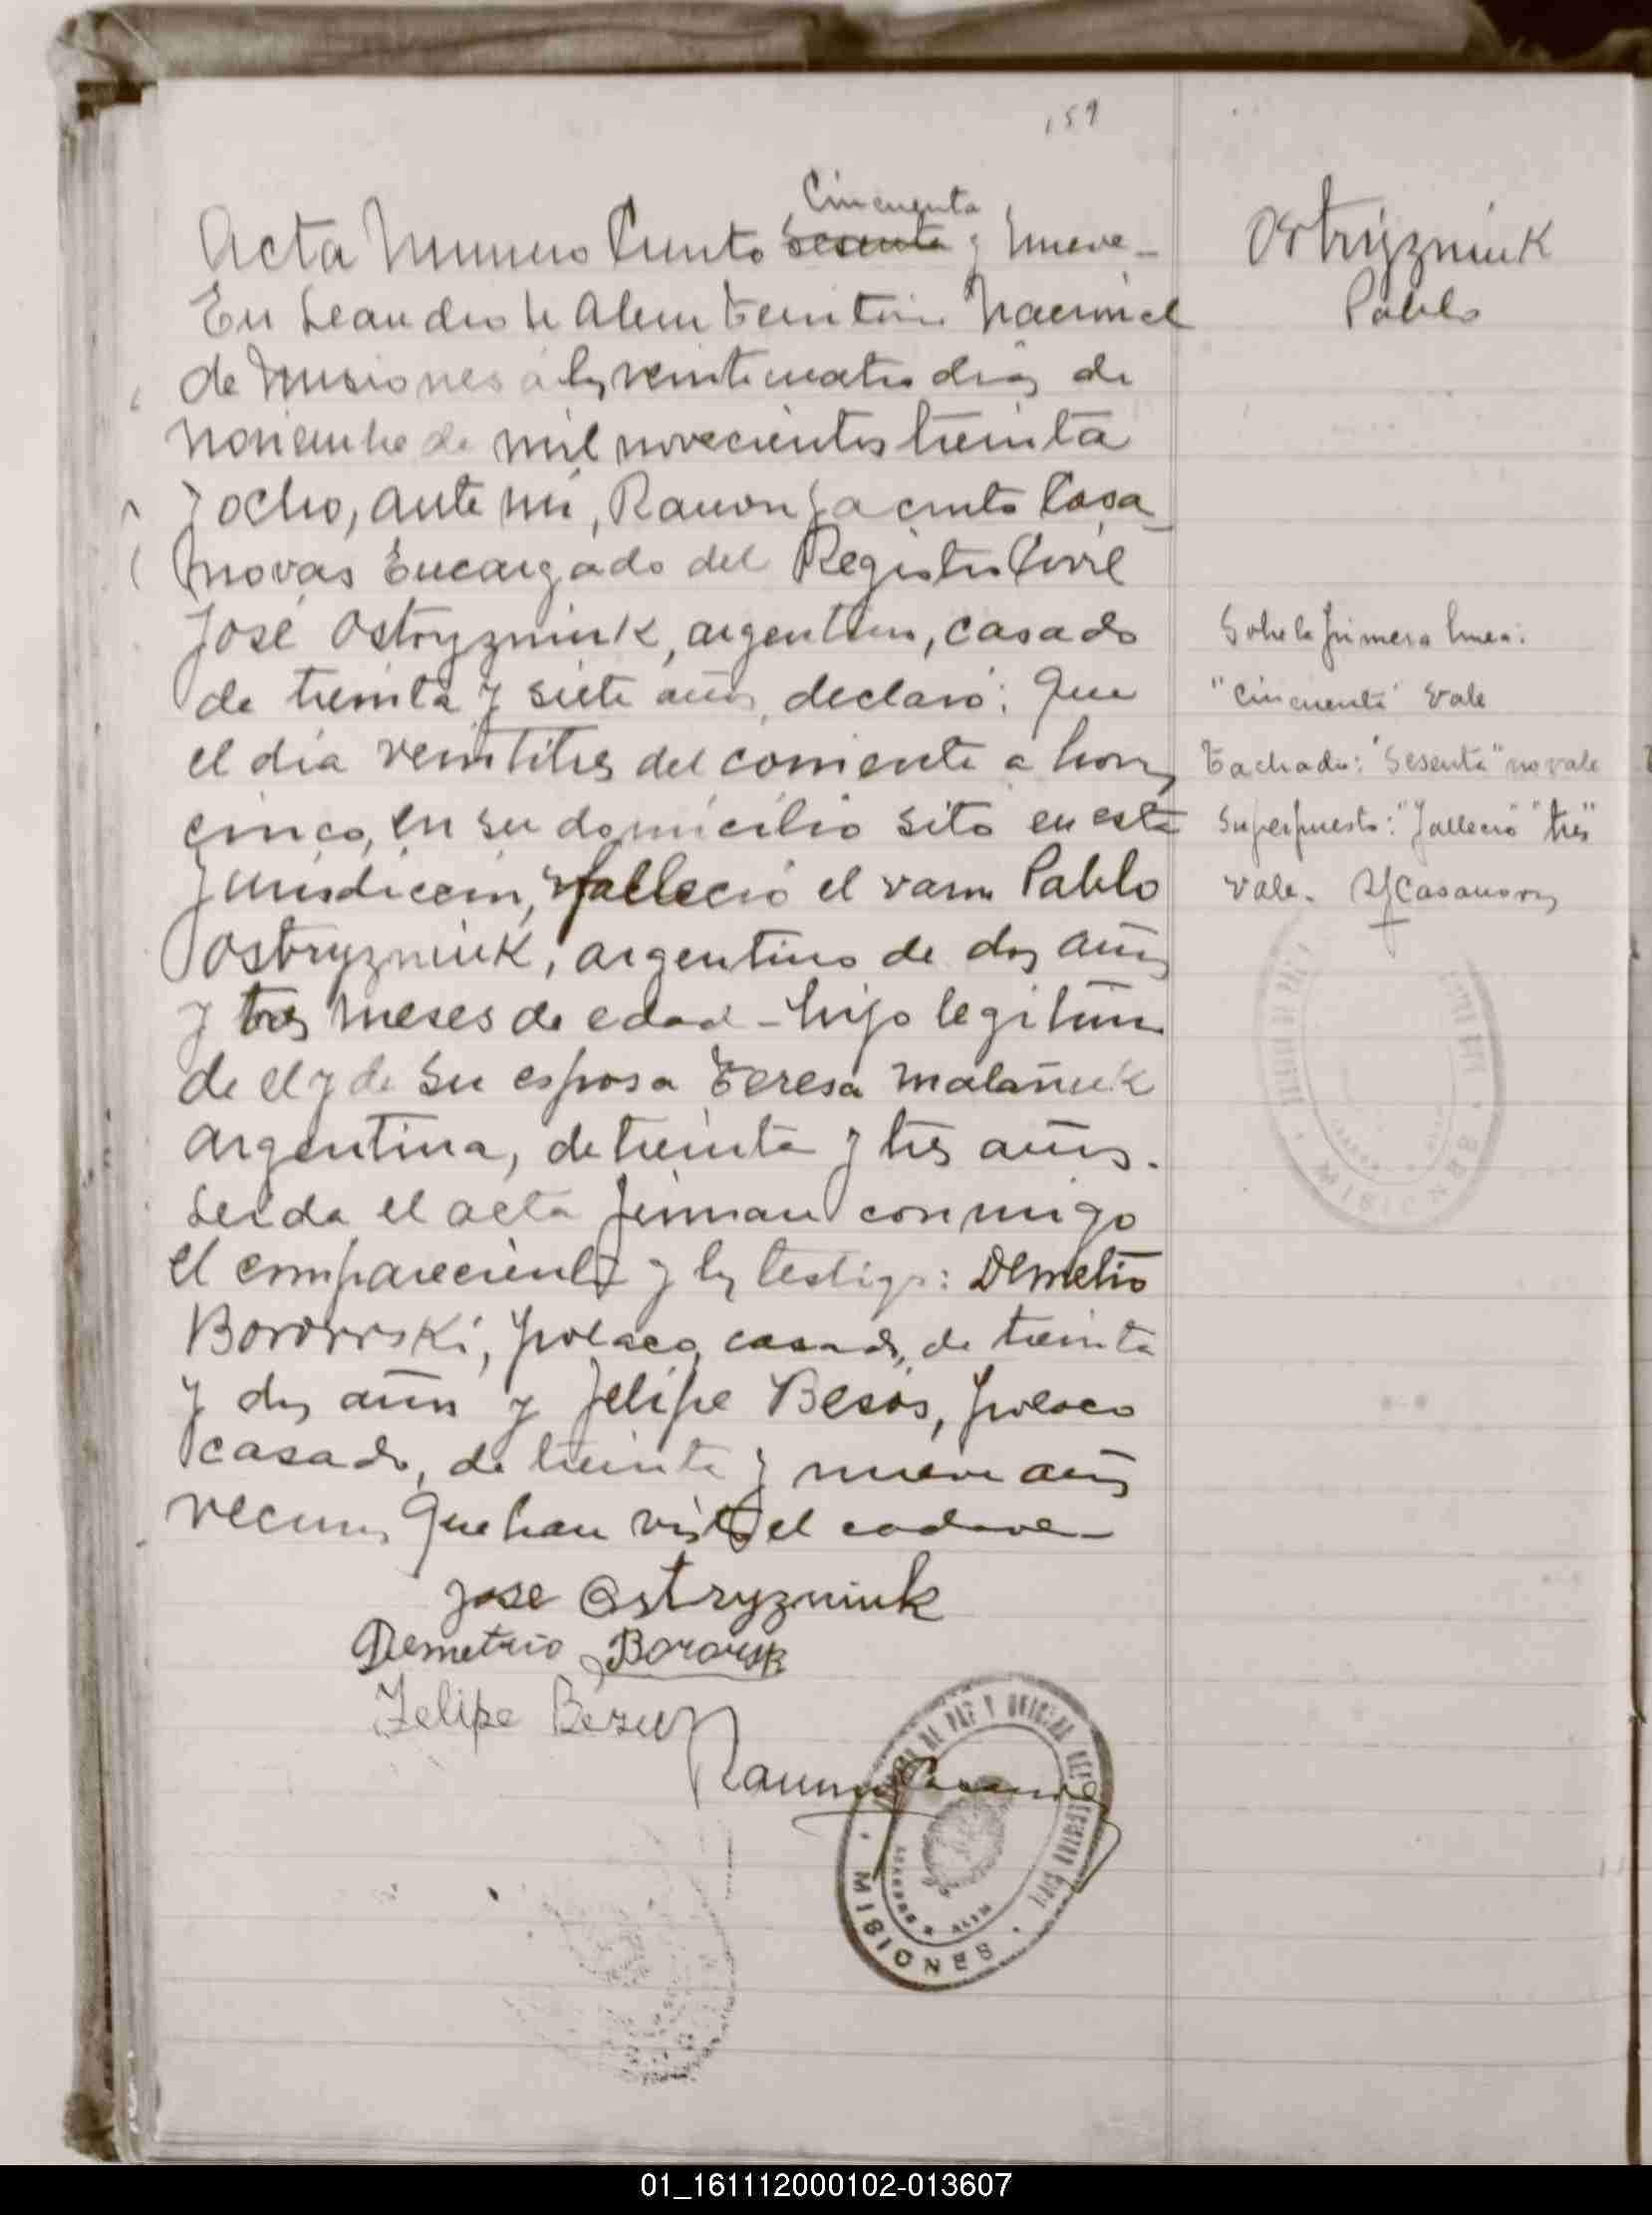 159
Cincuenta
Acta Numero Ciento Sesenta y Nueve-
En Leandro N Alem Territorio Nacional
de Misiones a los veinticuatro dias de
noviembre de mil novecientos treinta
y ocho, ante mi, Ramon Jacinto Casa-
novas Encargado del Registro Civil
José Ostryzniuk, argentino, casado
de treinta y siete años, declaró: Que
el dia veintitres del corriente a horas
cinco, en su domicilio sito en esta
Jurisdiccion, falleció el varon Pablo
Ostryzniuk, argentino de dos años
y tres meses de edad - hijo legitimo
de el y de su esposa Teresa Malañuk
argentina, de treinta y tres años.
Leida el acta firman conmigo
el compareciente y los testigos: Demetrio
Bororrski, polaco, casado, de treinta
y dos años y Felipe Besos, polaco
casado, de treinta y nueve años
vecinos que han visto el cadaver-
Jose Ostryzniuk
Demetrio Bororsk
Felipe Bezus
Ramon Casanovas
Ostryzniuk
Pablo
Sobre la primera linea:
"Cincuenta" Vale
Tachado: "Sesenta" no vale
Superpuesto: "falleció" "tres"
Vale. RJCasanovas
JUZGADO DE PAZ Y OFICINA DEL REGISTRO CIVIL
LEANDRO N. ALEM
MISIONES
MISIONES
01_161112000102-013607